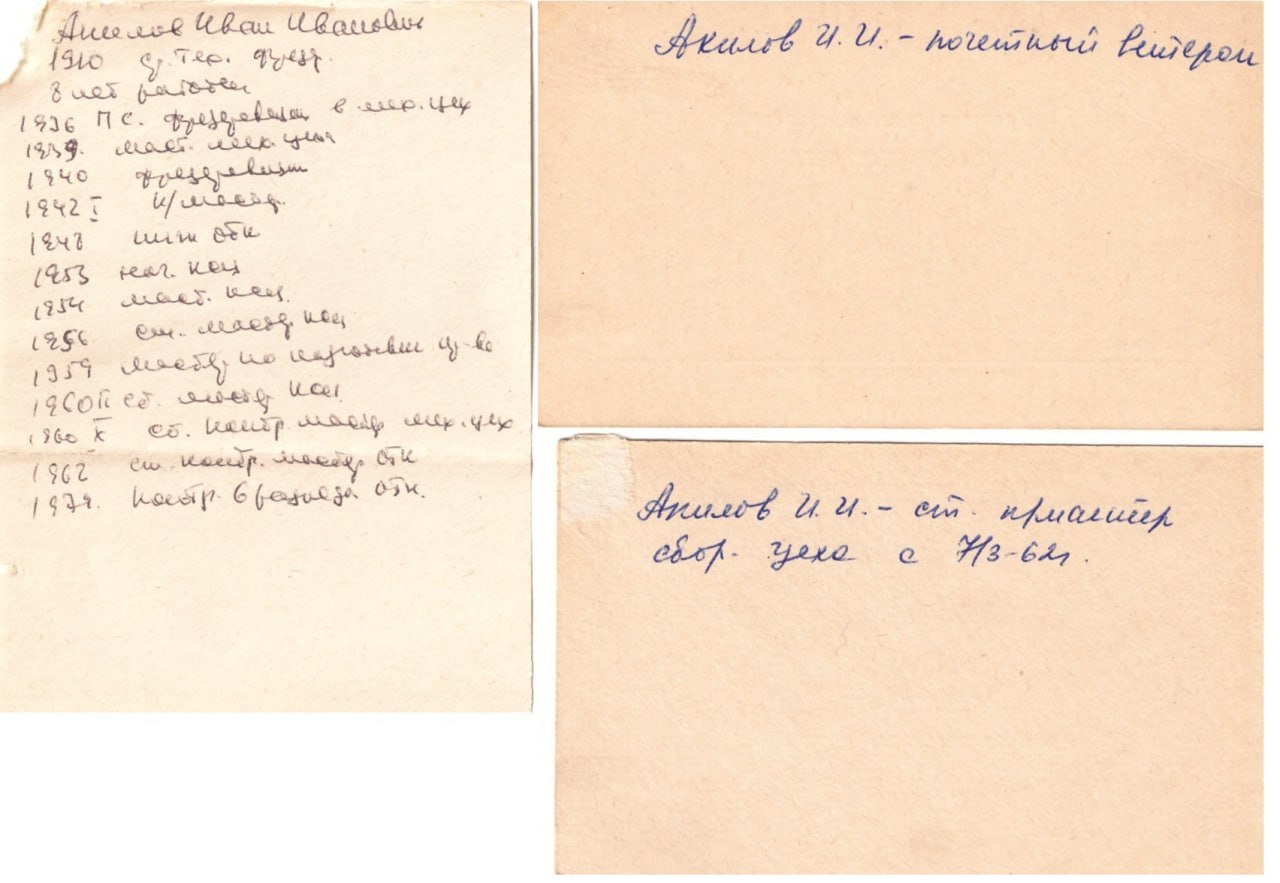 Акилов Иван Иванович
1910 ср. тех. фрезр.
8 лет работы
1936 ПС. фрезеровщик в мех. цех
1939. маст. мех. цеха
1940 фрезеровщик
1942 I к/мастер.
1948 инж ОТК
1953 нач. кац
1954 маст. кац.
1956 ст. мастер кац
1959 мастер по подготовке пр-ва
1960 II ст. мастер кац.
1960 X ст. контр. мастер мех. цех
1962 ст. контр. мастер ОТК
1979. контр. 6 разряда ОТК.
Акилов И. И. - почетный ветеран
Акилов И. И. - ст. к/мастер
сбор. цеха с 7/3-62г.